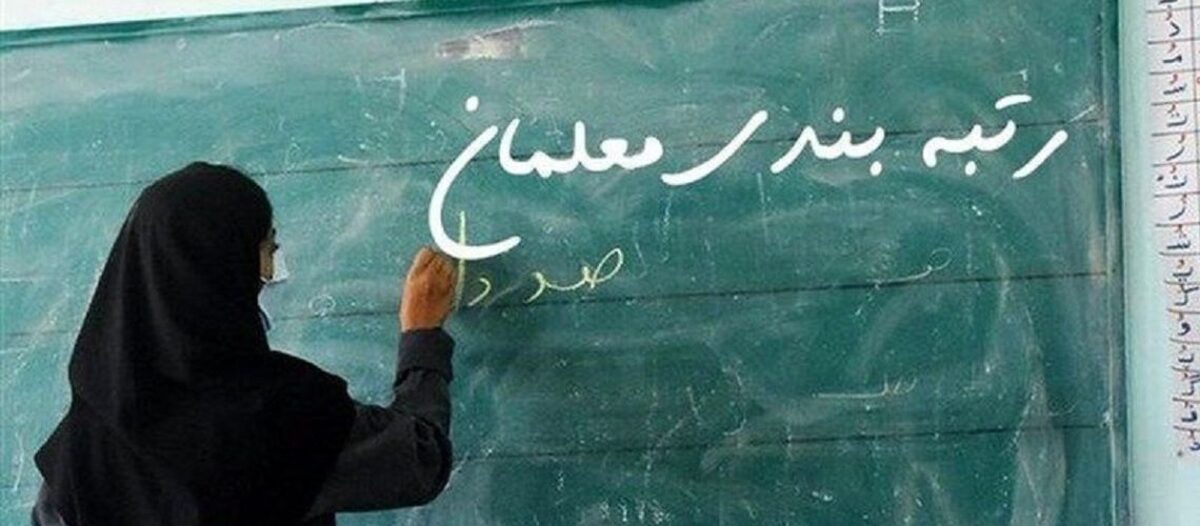 رتبه بندی معلمان
صد دا